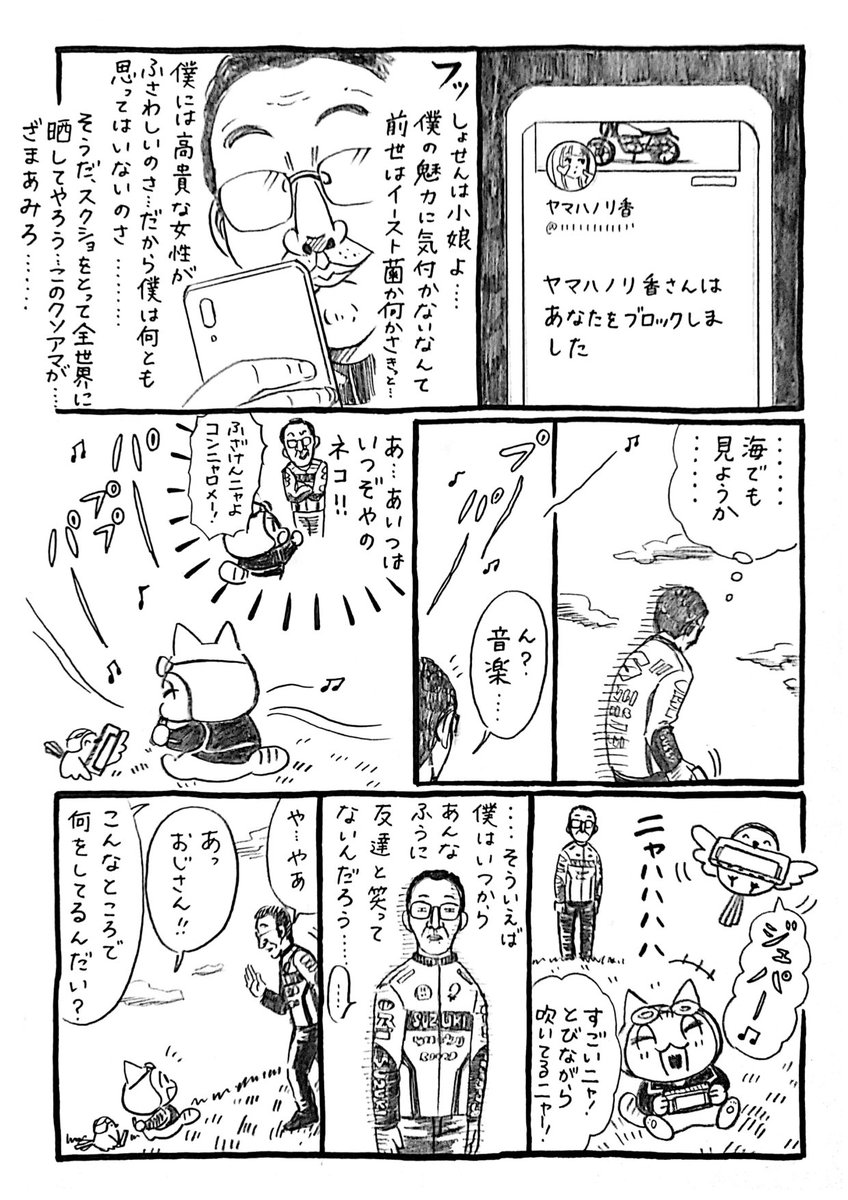 ヤマハノリ香
@
ヤマハノリ香さんは
あなたをブロックしま
した
フッ
しょせんは小娘よ……
僕の魅力に気付かないなんて
前世はイースト菌か何かさきっと…
僕には高貴な女性が
ふさわしいのさ…だから僕は何とも
思ってはいないのさ………
そうだ、スクショをとって全世界に
晒してやろう…このクソアマが……
ざまあみろ………
……
海でも
見ようか
……
パプー
ん?
音楽…
あ…あいつは
いつぞやの
ネコ!!
ふざけんニャよ
コンニャロメー!
パプパプー
ジュパー♪
ニャハハハハ
すごいニャ!
とびながら
吹いてるニャー!
…そういえば
僕はいつから
あんな
ふうに
友達と笑って
ないんだろう…
…
SUZUKI
や…やあ
あっ
おじさん!!
こんなところで
何をしてるんだい?